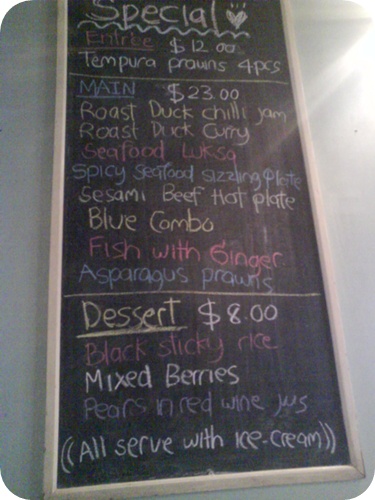 Special
Entrée $12.00
Tempura prawns 4pcs
MAIN $23.00
Roast Duck chilli jam
Roast Duck Curry
Seafood Luksa
Spicy Seafood sizzling Plate
Sesami Beef Hot plate
Blue Combo
Fish with Ginger
Asparagus prawns
Dessert $8.00
Black sticky rice
Mixed Berries
Pears in red wine jus
((All serve with Ice-cream))